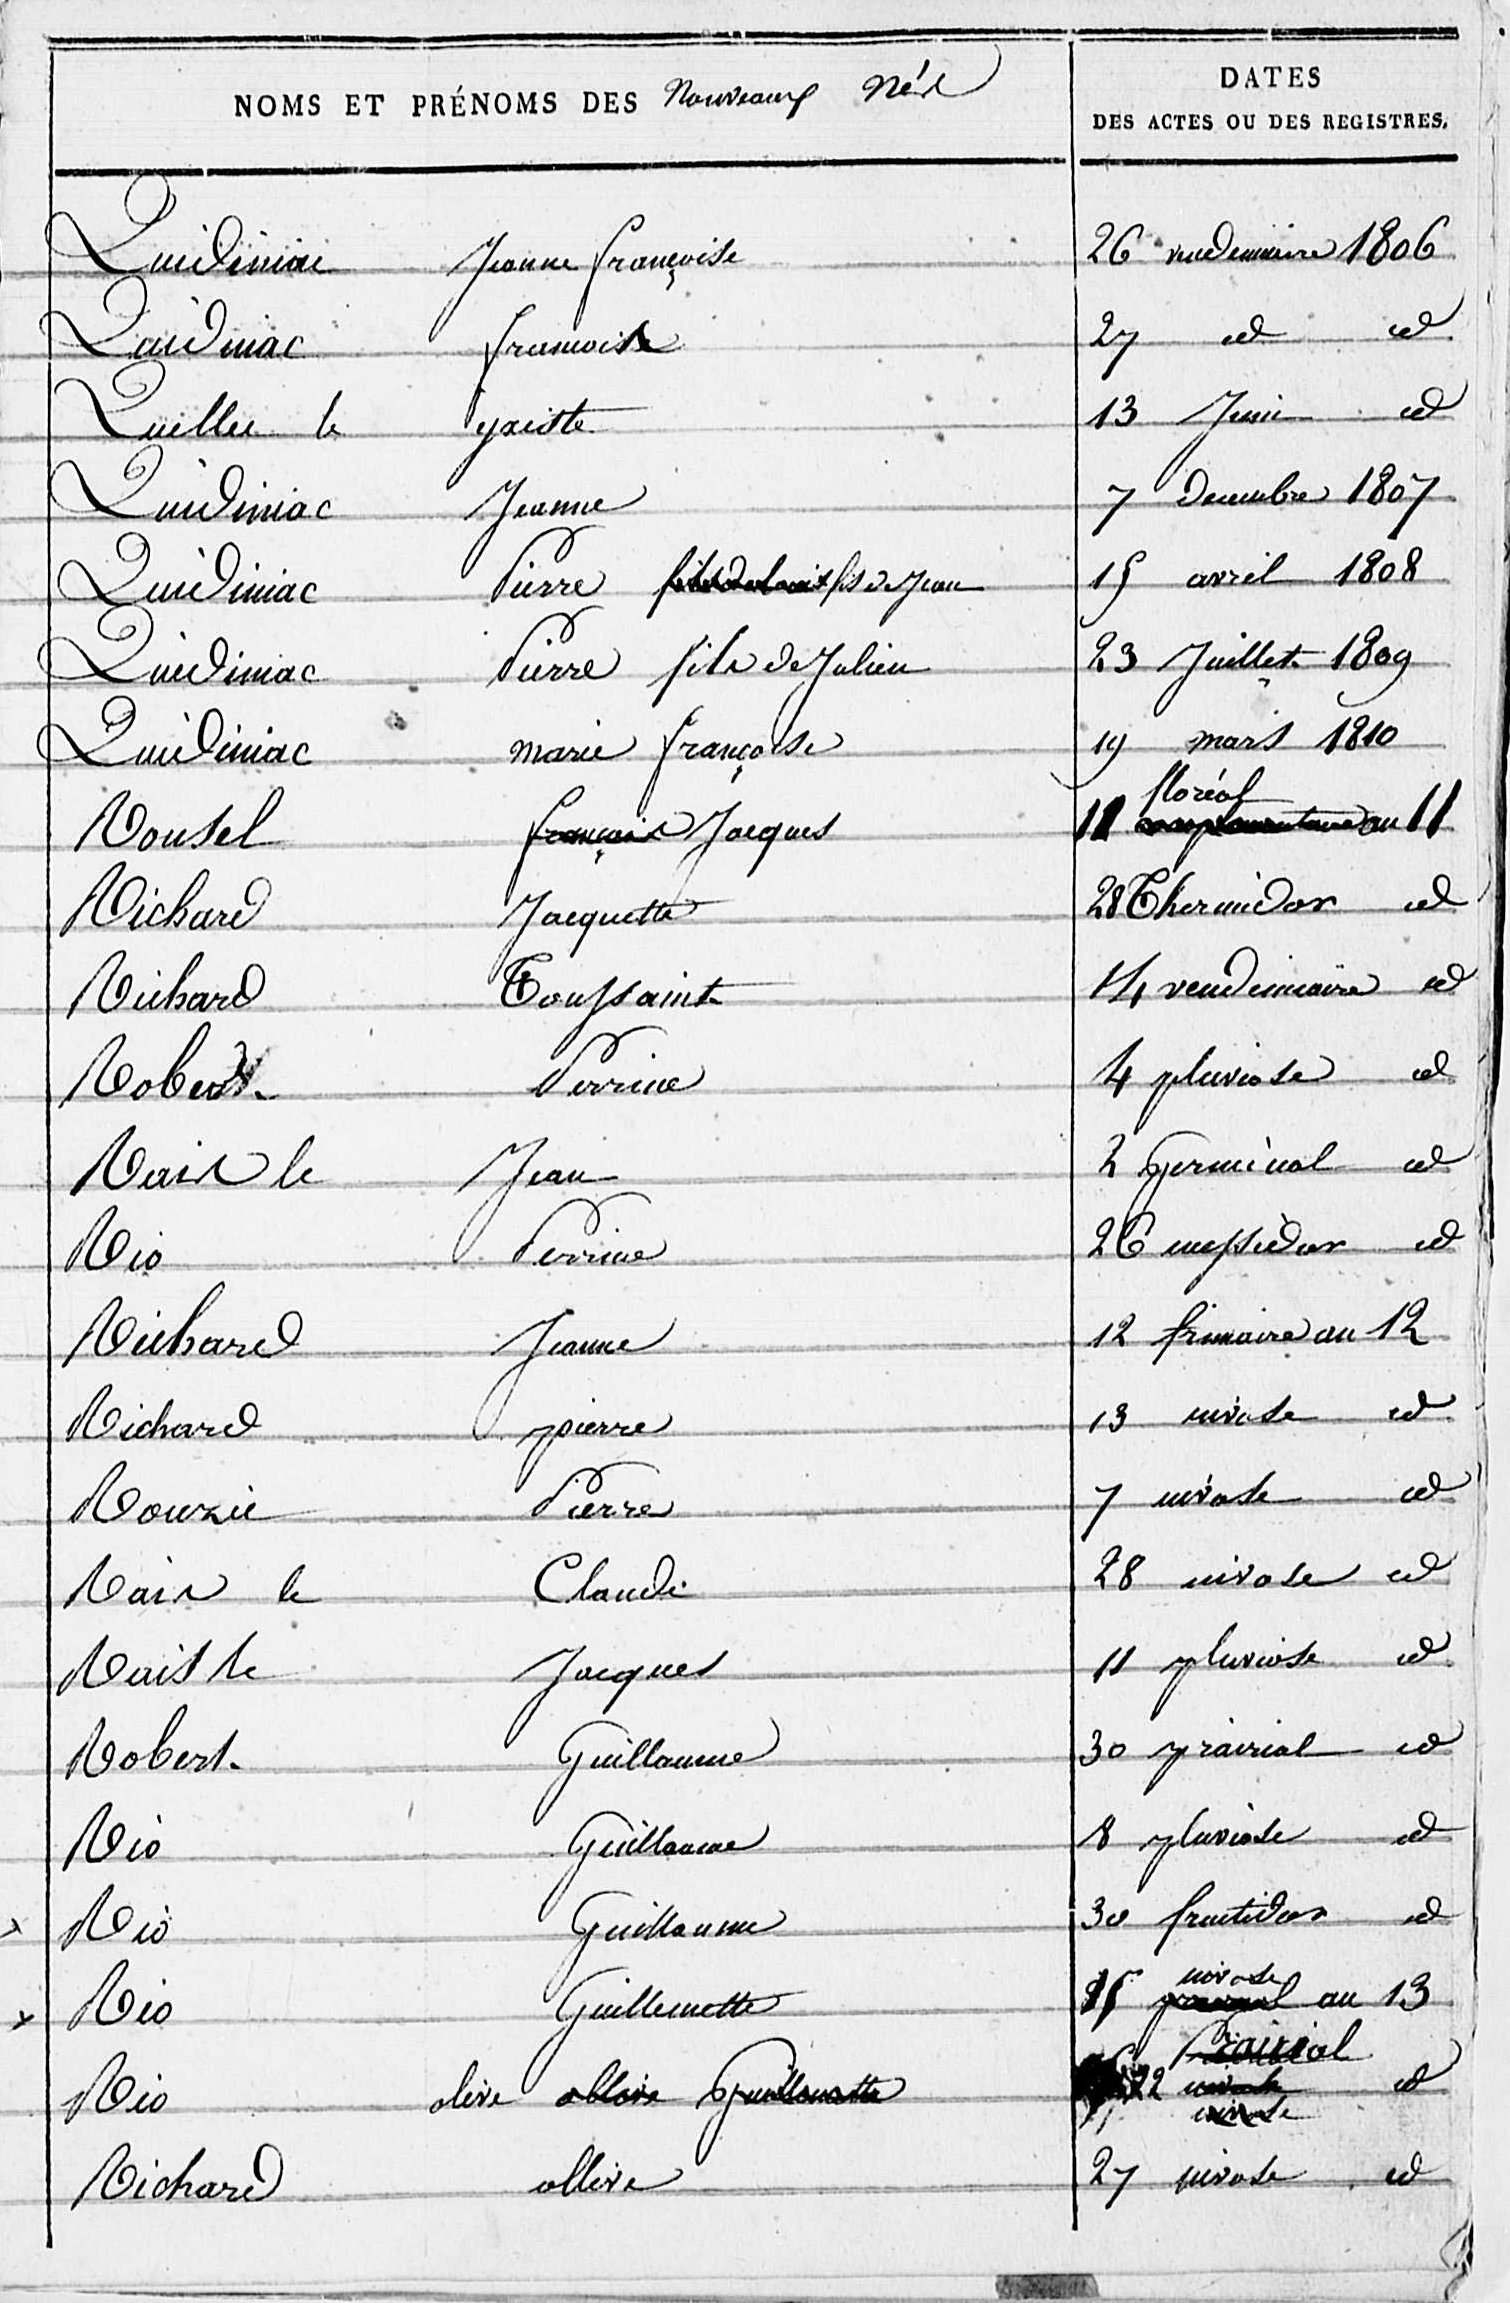 NOMS ET PRÉNOMS DES Nouveaux Nés
DATES
DES ACTES OU DES REGISTRES.
Quidiniac Jeanne françoise 26 vendemiaire 1806
Quidiniac francoise 27 id id
Quellec le yxiste 13 Juin id
Quidiniac Jeanne 7 decembre 1807
Quidiniac Pierre fils de Jean 15 avril 1808
Quidiniac Pierre fils de Julien 23 Juillet 1809
Quidiniac marie françoise 19 mars 1810
floréal
Rousel françois Jacques 11 an 11
Richard Jacquette 28 Thermidor id
Richard Toussaint 14 vendemiaire id
Robert Perrine 4 pluviose id
Rais le Jean 2 Germinal id
Rio Perrine 26 messidor id
Richard Jeanne 12 frimaire an 12
Richard pierre 13 nivose id
Rouxic Pierre 7 nivose id
Rais le Claude 28 nivose id
Rais le Jacques 11 pluviose id
Robert Guillaume 30 prairial id
Rio Guillaume 8 pluviose id
x Rio Guillaume 30 fructidor id
nivose
x Rio Guillemette 15 prairial an 13
Prairial
Rio olive ollive Guillemette 22 nivose id
nivose
Richard ollive 27 nivose id